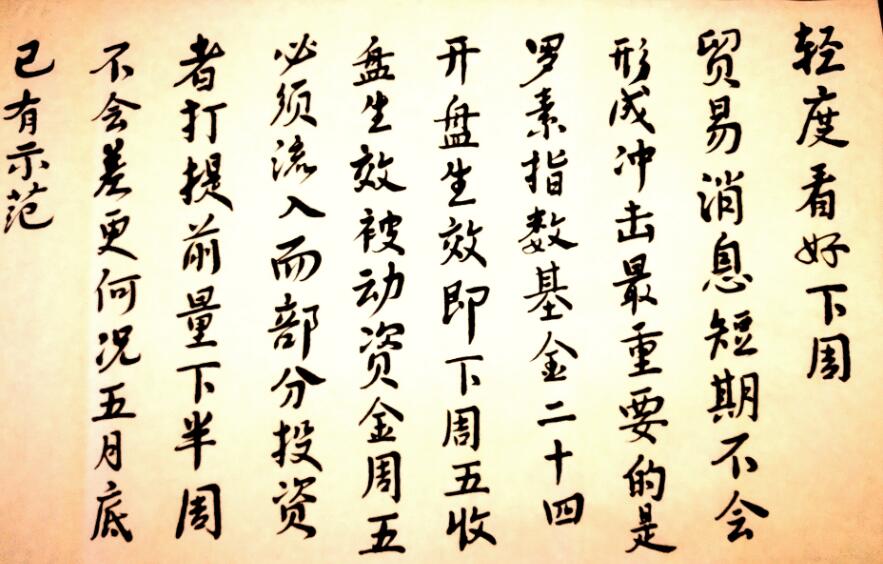 轻度看好下周
贸易消息短期不会
形成冲击最重要的是
罗素指数基金二十四
开盘生效即下周五收
盘生效被动资金周五
必须流入而部分投资
者打提前量下半周
不会差更何况五月底
已有示范